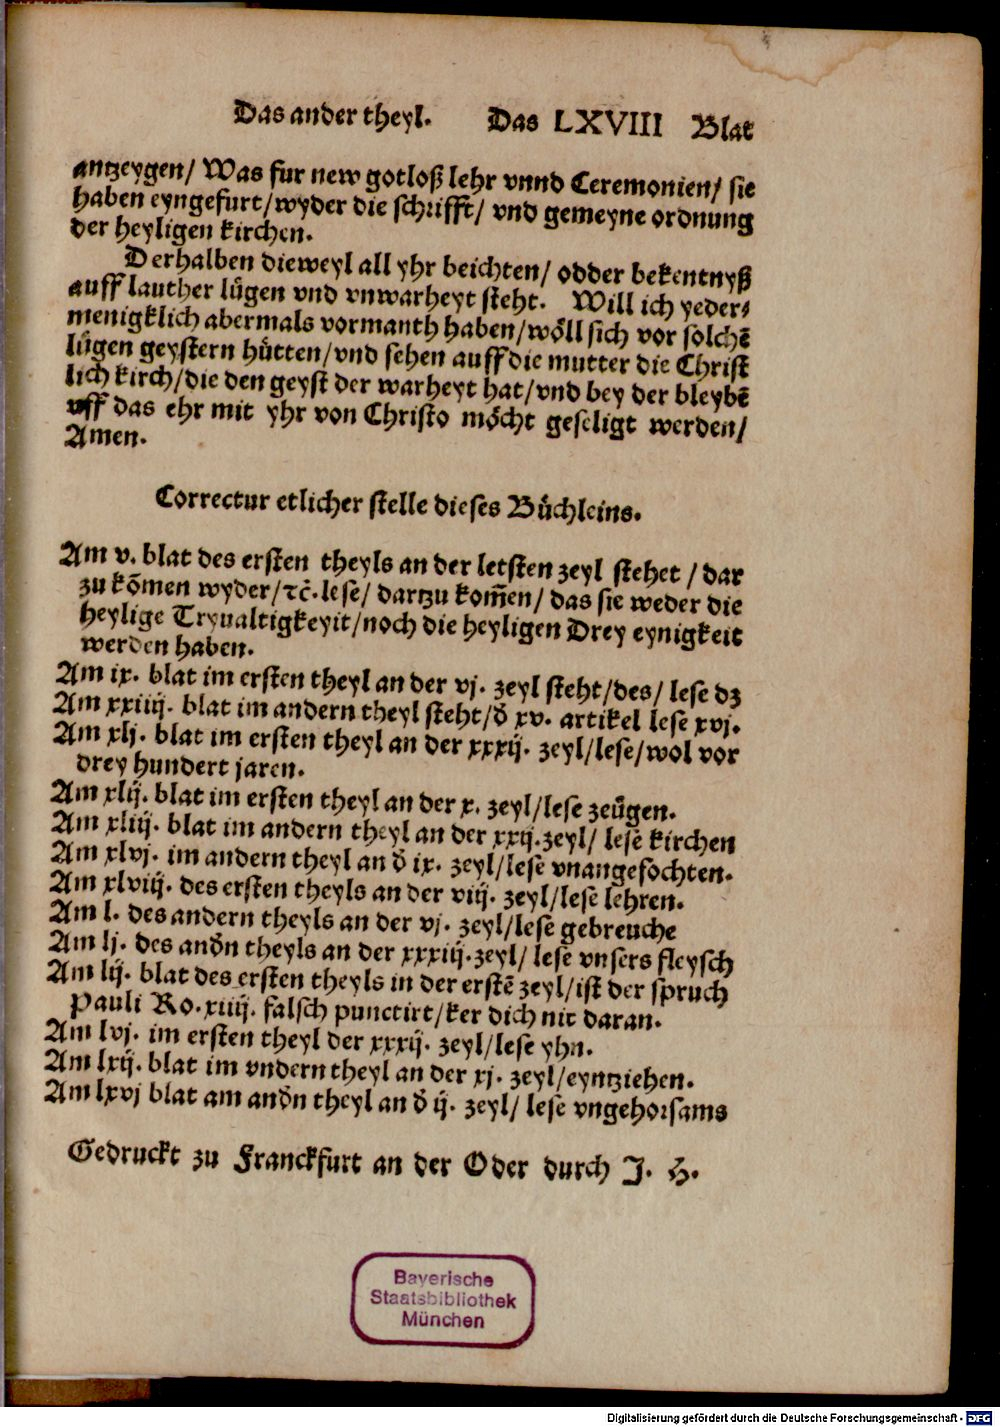 Das ander theyl. Das LXVIII Blat
antzeygen/ Was fur new gotloß lehr vnnd Ceremonien/ sie
haben eyngefurt/wyder die schrifft/ vnd gemeyne ordnung
der heyligen kirchen.
Derhalben dieweyl all yhr beichten/ odder bekentnyß
auff lauther lůgen vnd vnwarheyt steht. Will ich yeder⸗
menigklich abermals vormanth haben/wöll sich vor solchē
lůgen geystern hůtten/vnd sehen auff die mutter die Christ
lich kirch/die den geyst der warheyt hat/vnd bey der bleybē
vff das ehr mit yhr von Christo möcht geseligt werden/
Amen.
Correctur etlicher stelle dieses Bůchleins.
Am v. blat des ersten theyls an der letsten zeyl stehet / dar
zu kōmen wyder/ꝛc̄. lese/ dartzu kom̄en/ das sie weder die
heylige Tryualtigkeyit/noch die heyligen Drey eynigkeit
werden haben.
Am ix. blat im ersten theyl an der vj. zeyl steht/des/ lese dz
Am xxiiij. blat im andern theyl steht/d̄ xv. artikel lese xvj.
Am xlj. blat im ersten theyl an der xxxij. zeyl/lese/wol vor
drey hundert jaren.
Am xlij. blat im ersten theyl an der x. zeyl/lese zeůgen.
Am xliij. blat im andern theyl an der xxij.zeyl/ lese kirchen
Am xlvj. im andern theyl an d̄ ix. zeyl/lese vnangefochten.
Am xlviij. des ersten theyls an der viij. zeyl/lese lehren.
Am l. des andern theyls an der vj. zeyl/lese gebreuche
Am lj. des and̄n theyls an der xxxiij.zeyl/ lese vnsers fleysch
Am lij. blat des ersten theyls in der erstē zeyl/ist der spruch
Pauli Ro. xiiij. falsch punctirt/ker dich nit daran.
Am lvj. im ersten theyl der xxxij. zeyl/lese yhn.
Am lxij. blat im vndern theyl an der xj. zeyl/eyntziehen.
Am lxvj blat am and̄n theyl an d̄ ij. zeyl/ lese vngehorsams
Gedruckt zu Franckfurt an der Oder durch J. H.
Bayerische
Staatsbibliothek
München
Digitalisierung gefördert durch die Deutsche Forschungsgemeinschaft - DFG